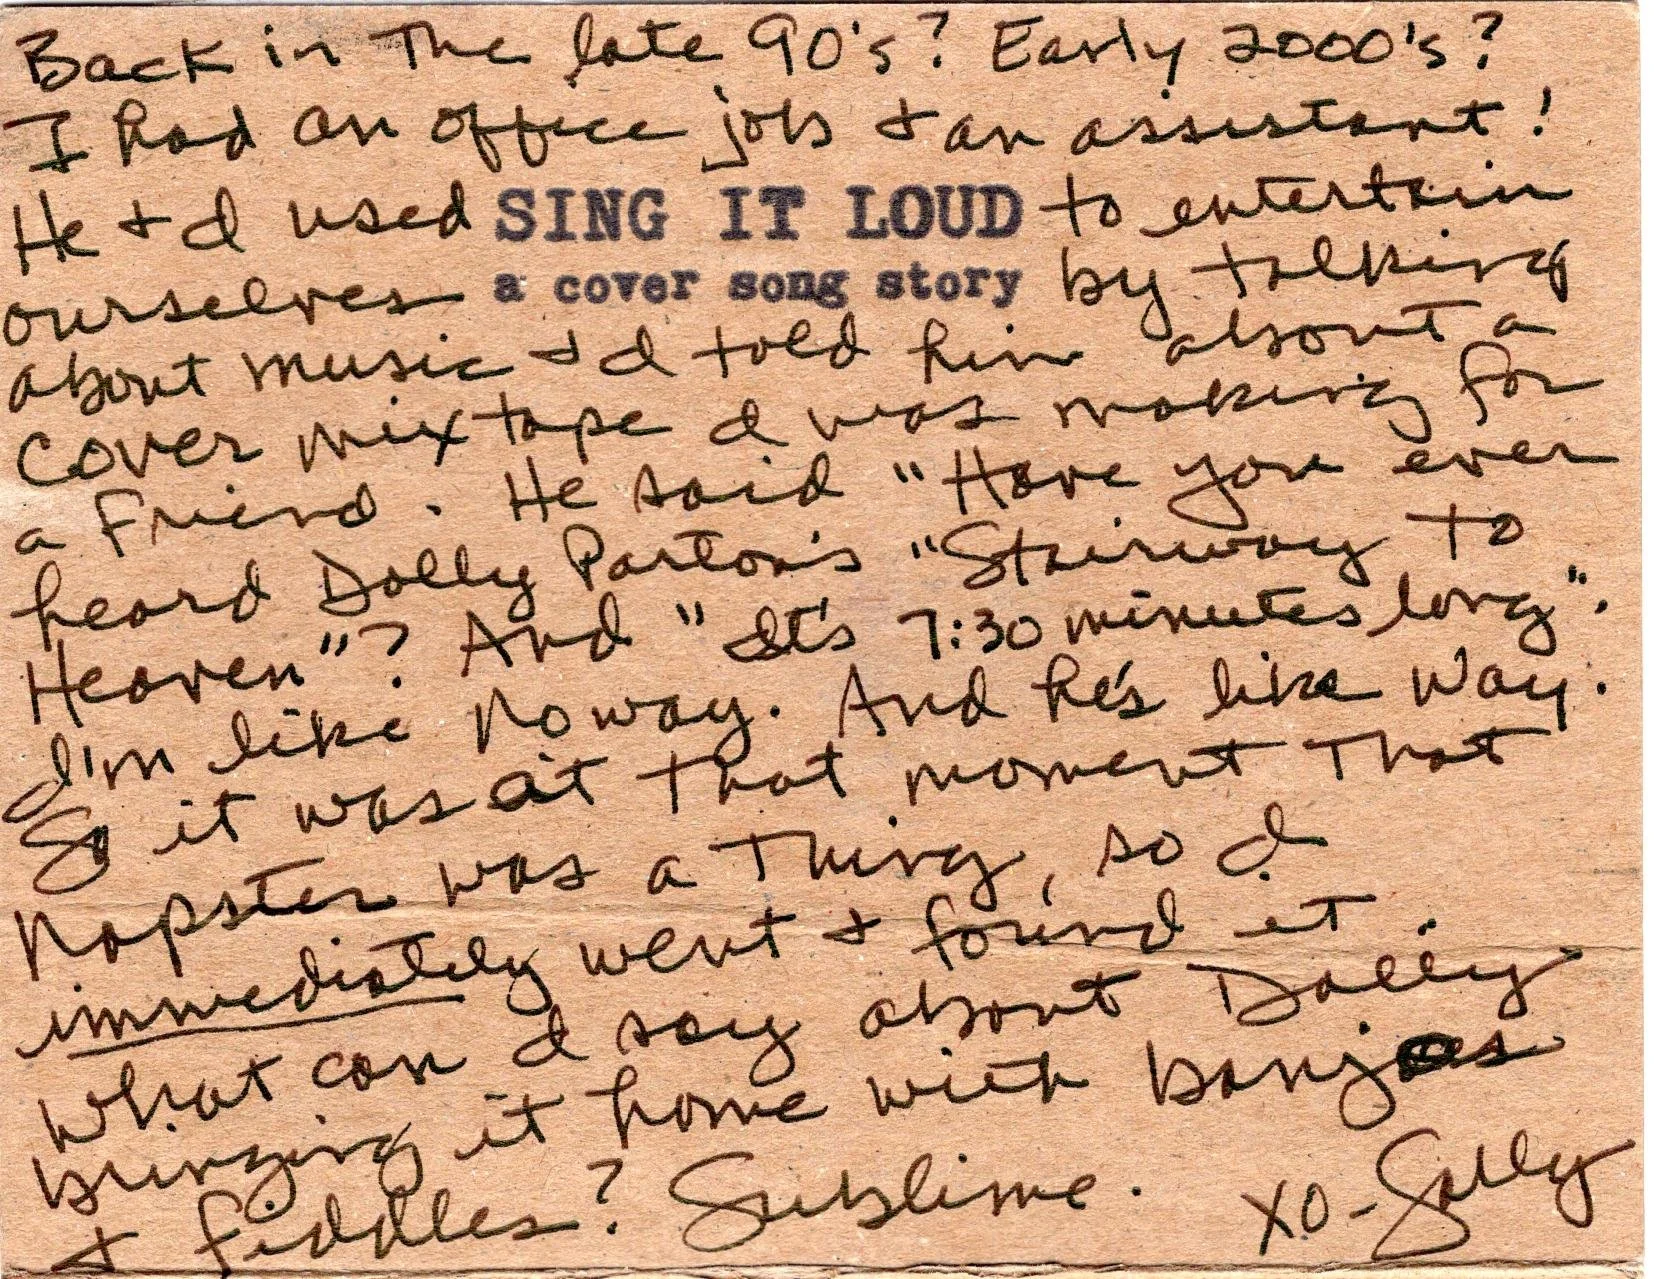 Back in The late 90's? Early 2000's?
I had an office job + an assistant!
He + I used SING IT LOUD to entertain
ourselves a cover song story by talking
about music + I told him about a
cover mix tape I was making for
a friend. He said "Have you ever
heard Dolly Parton's "Stairway to
Heaven"? And "It's 7:30 minutes long".
I'm like No way. And he's like Way.
So it was at that moment That
Napster was a Thing, so I
immediately went + found it.
What can I say about Dolly
bringing it home with banjos
+ fiddles? Sublime. XO-Sally